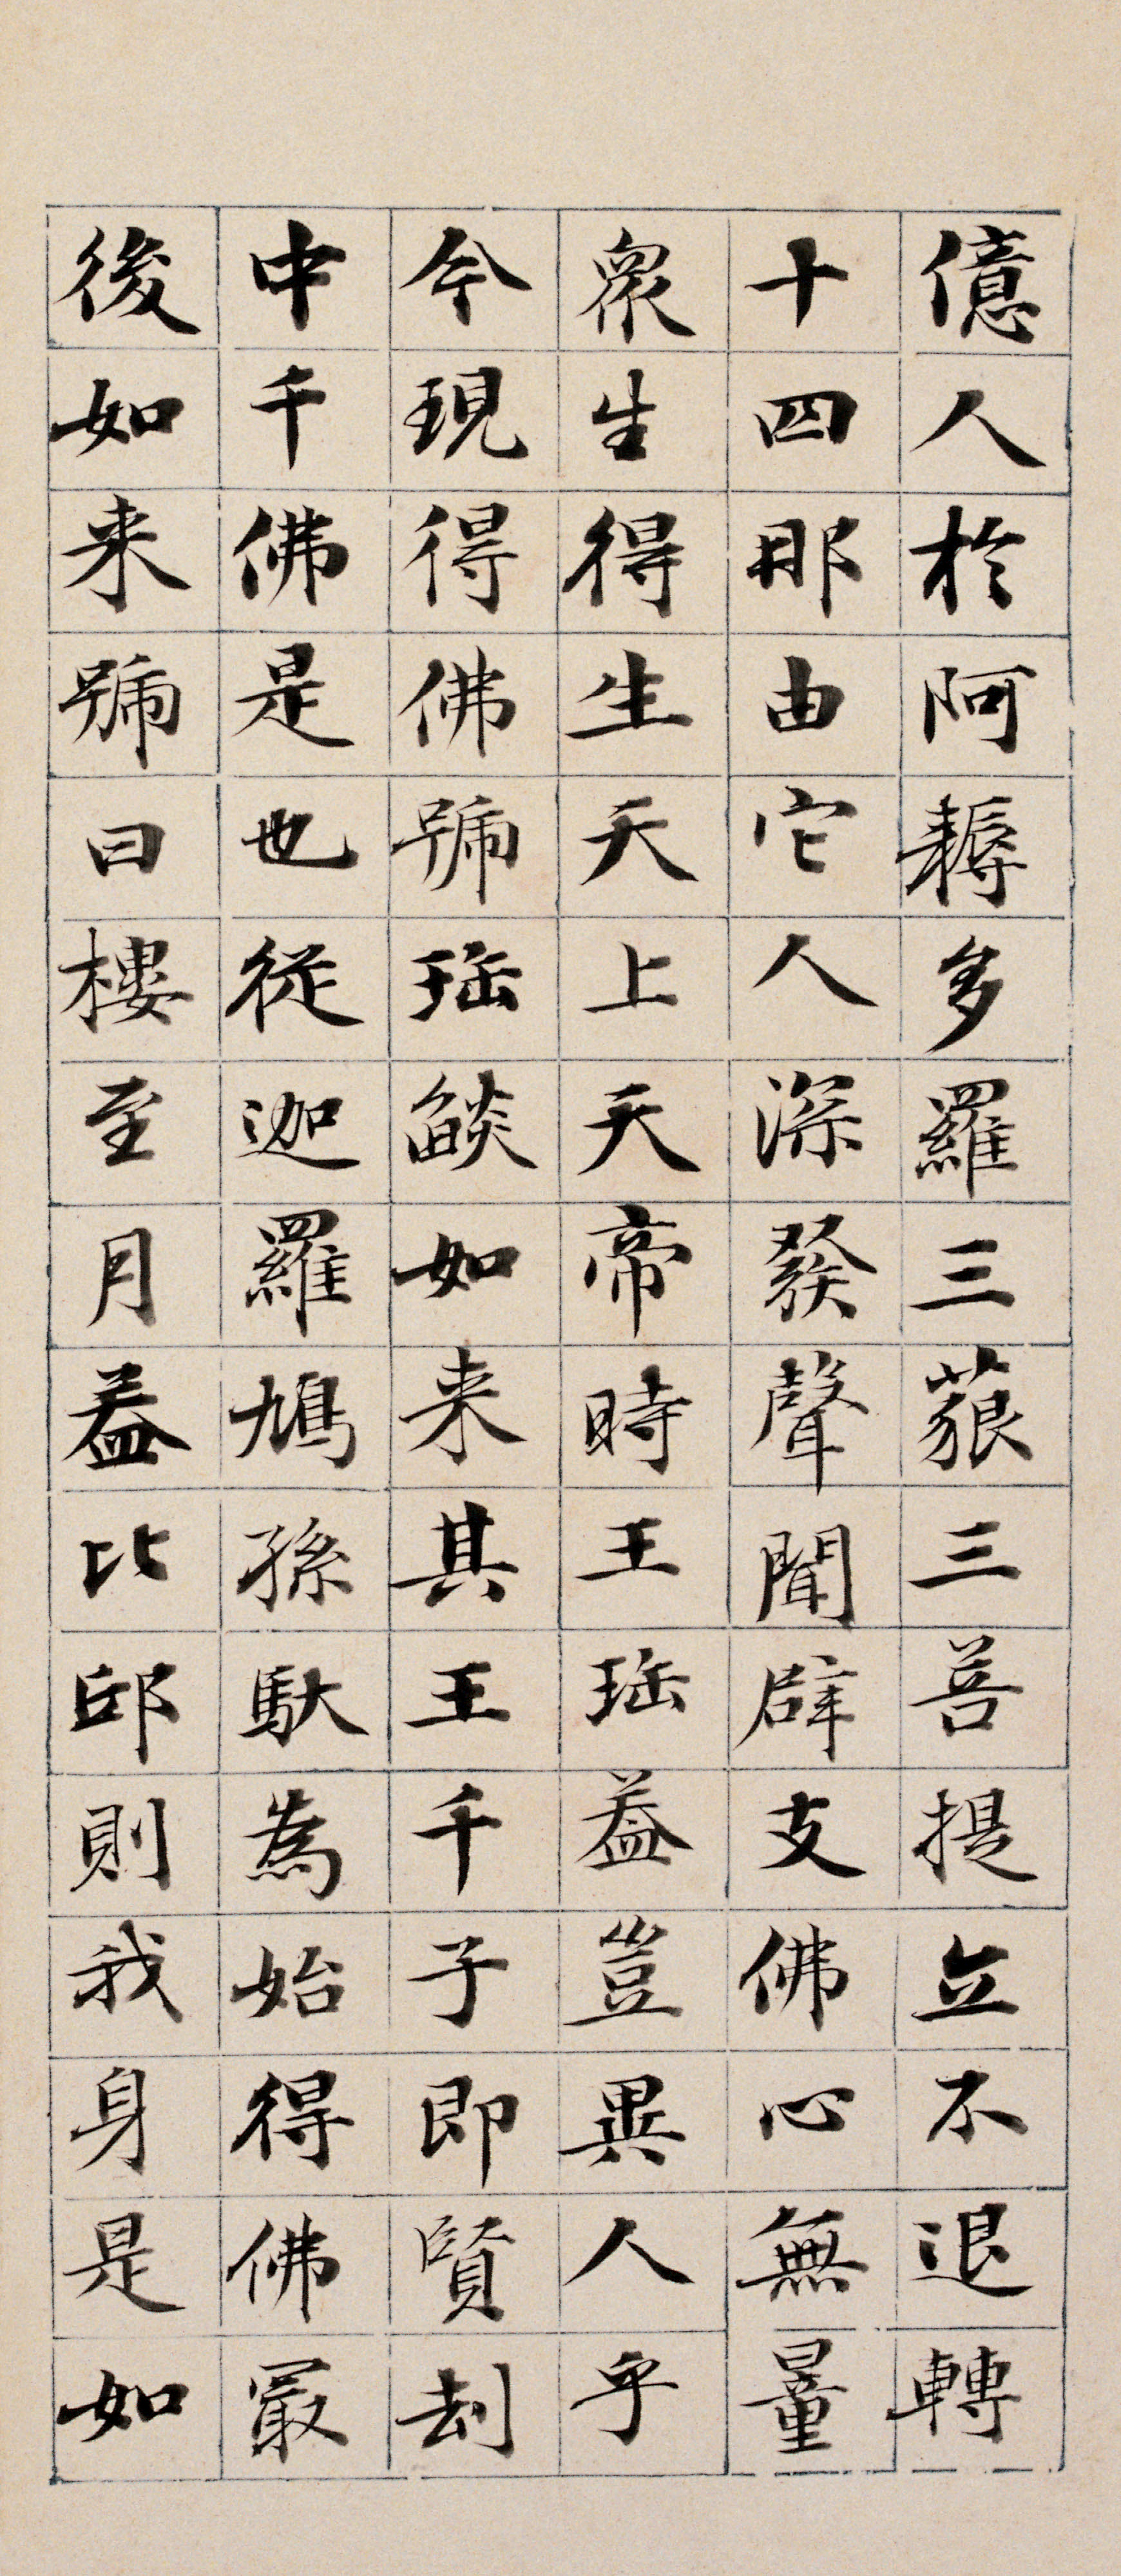 億人於阿耨多羅三藐三菩提立不退轉
十四那由它人深發聲聞辟支佛心無量
衆生得生天上天帝時王珤葢豈異人乎
今現得佛號珤燄如来其王千子即賢刦
中千佛是也從迦羅鳩孫馱為始得佛㝡
後如来號曰樓至月葢比邱則我身是如